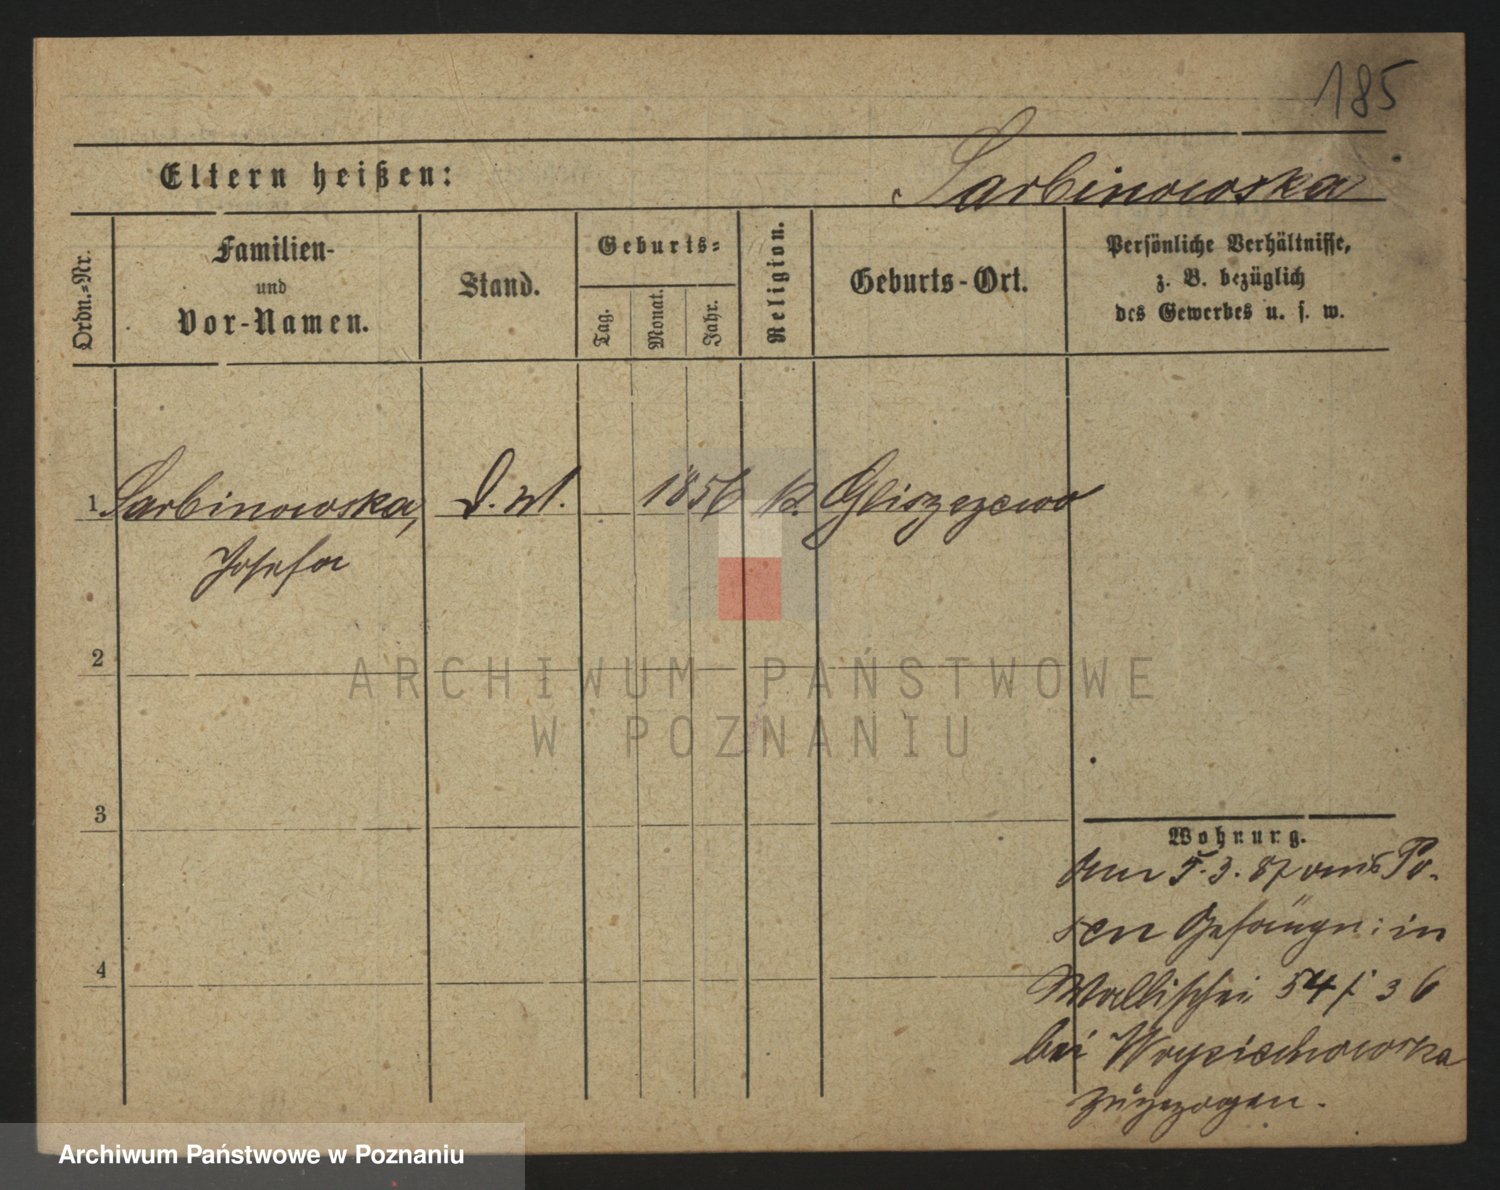 185
Eltern heißen:
Sarbinowska
Ordn.-Nr.
Familien-
und
Vor-Namen.
Stand.
Geburts-
Tag.
Monat.
Jahr.
Religion.
Geburts-Ort.
Persönliche Verhältnisse,
z. B. bezüglich
des Gewerbes u. s. w.
1 Sarbinowska, 1856 k. Gliszczewo
Josefa
2
ARCHIWUM PAŃSTWOWE
W POZNANIU
3
Wohnung.
Am 5.3.87 aus Po-
sen Gefängn: in
4
Wallischei 54/ 36
bei Woyciechowska
zugezogen.
Archiwum Państwowe w Poznaniu